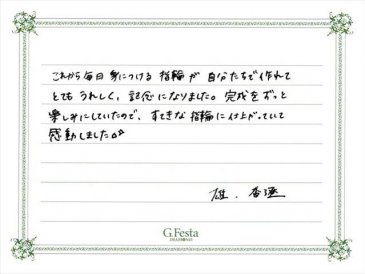 これから毎日 身につける 指輪が 自分たちで作れて
とても うれしく、記念になりました。完成をずっと
楽しみにしていたので、すてきな指輪に仕上がっていて
感動しました。
雄.
G.Festa